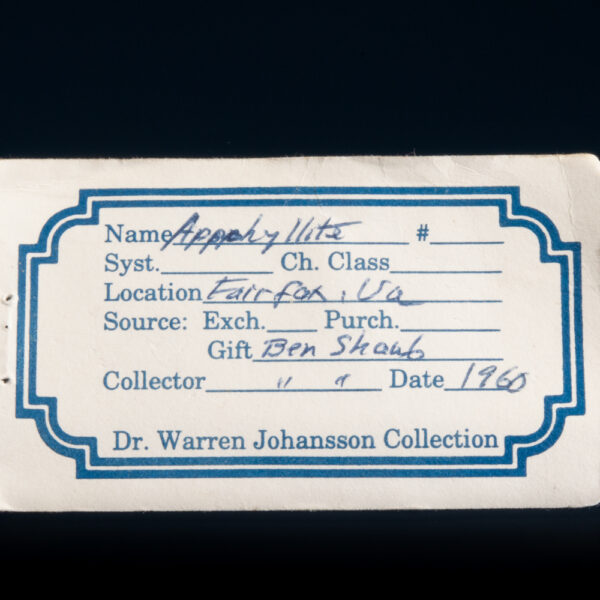 Name Appohyllite #
Syst. Ch. Class
Location Fairfax, Va
Source: Exch. Purch.
Gift Ben Shaub
Collector " " Date 1960
Dr. Warren Johansson Collection